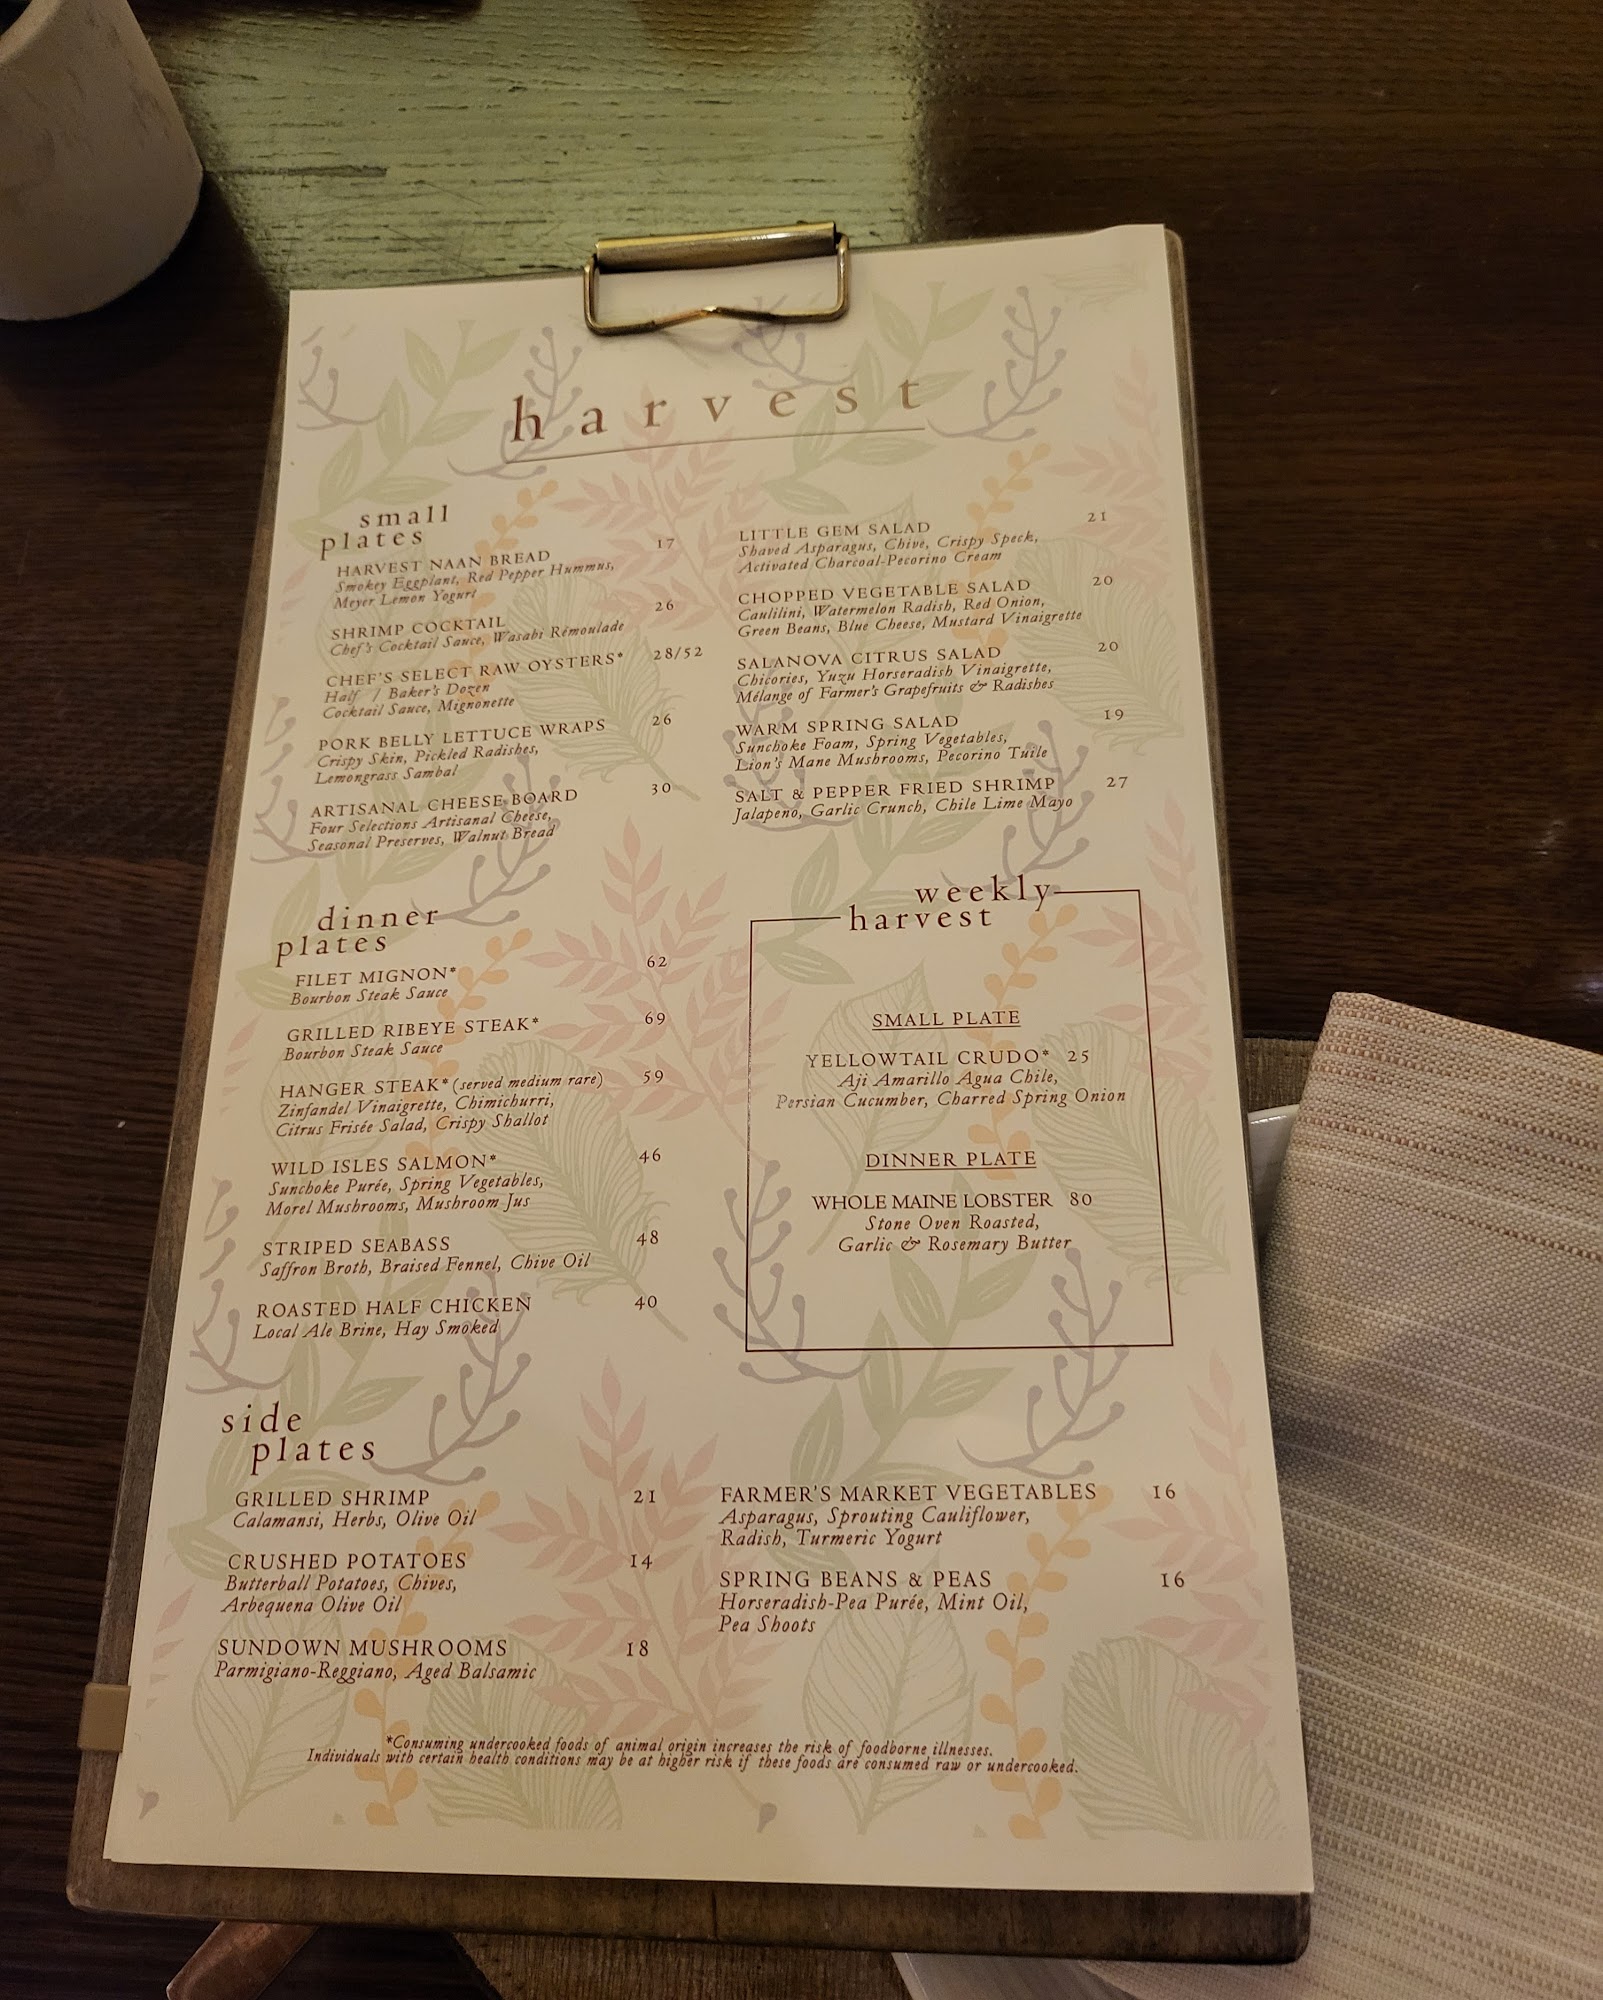 harvest
small
plates
HARVEST NAAN BREAD 17
Smokey Eggplant, Red Pepper Hummus,
Meyer Lemon Yogurt
SHRIMP COCKTAIL 26
Chef's Cocktail Sauce, Wasabi Rémoulade
CHEF'S SELECT RAW OYSTERS* 28/52
Half / Baker's Dozen
Cocktail Sauce, Mignonette
PORK BELLY LETTUCE WRAPS 26
Crispy Skin, Pickled Radishes,
Lemongrass Sambal
ARTISANAL CHEESE BOARD 30
Four Selections Artisanal Cheese,
Seasonal Preserves, Walnut Bread
LITTLE GEM SALAD 21
Shaved Asparagus, Chive, Crispy Speck,
Activated Charcoal-Pecorino Cream
CHOPPED VEGETABLE SALAD 20
Caulilini, Watermelon Radish, Red Onion,
Green Beans, Blue Cheese, Mustard Vinaigrette
SALANOVA CITRUS SALAD 20
Chicories, Yuzu Horseradish Vinaigrette,
Mélange of Farmer's Grapefruits & Radishes
WARM SPRING SALAD 19
Sunchoke Foam, Spring Vegetables,
Lion's Mane Mushrooms, Pecorino Tuile
SALT & PEPPER FRIED SHRIMP 27
Jalapeno, Garlic Crunch, Chile Lime Mayo
dinner
plates
FILET MIGNON* 62
Bourbon Steak Sauce
GRILLED RIBEYE STEAK* 69
Bourbon Steak Sauce
HANGER STEAK* (served medium rare) 59
Zinfandel Vinaigrette, Chimichurri,
Citrus Frisée Salad, Crispy Shallot
WILD ISLES SALMON* 46
Sunchoke Purée, Spring Vegetables,
Morel Mushrooms, Mushroom Jus
STRIPED SEABASS 48
Saffron Broth, Braised Fennel, Chive Oil
ROASTED HALF CHICKEN 40
Local Ale Brine, Hay Smoked
weekly
harvest
SMALL PLATE
YELLOWTAIL CRUDO* 25
Aji Amarillo Agua Chile,
Persian Cucumber, Charred Spring Onion
DINNER PLATE
WHOLE MAINE LOBSTER 80
Stone Oven Roasted,
Garlic & Rosemary Butter
side
plates
GRILLED SHRIMP 21
Calamansi, Herbs, Olive Oil
CRUSHED POTATOES 14
Butterball Potatoes, Chives,
Arbequena Olive Oil
SUNDOWN MUSHROOMS 18
Parmigiano-Reggiano, Aged Balsamic
FARMER'S MARKET VEGETABLES 16
Asparagus, Sprouting Cauliflower,
Radish, Turmeric Yogurt
SPRING BEANS & PEAS 16
Horseradish-Pea Purée, Mint Oil,
Pea Shoots
*Consuming undercooked foods of animal origin increases the risk of foodborne illnesses.
Individuals with certain health conditions may be at higher risk if these foods are consumed raw or undercooked.